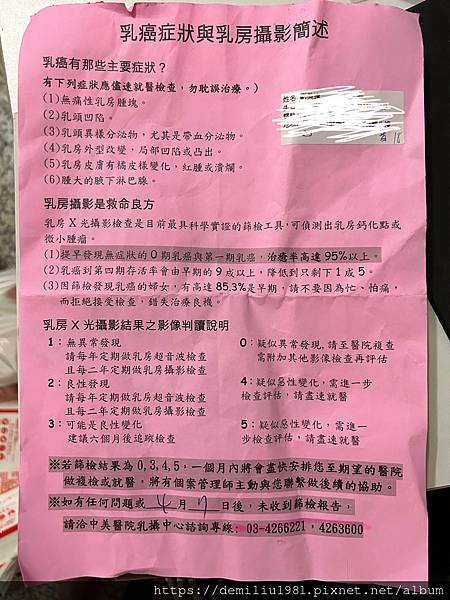 乳癌症狀與乳房攝影簡述
乳癌有那些主要症狀？
有下列症狀應儘速就醫檢查，勿耽誤治療。）
(1)無痛性乳房腫塊。
(2)乳頭凹陷。
(3)乳頭異樣分泌物，尤其是帶血分泌物。
(4)乳房外型改變，局部凹陷或凸出。
(5)乳房皮膚有橘皮樣變化，紅腫或潰爛。
(6)腫大的腋下淋巴腺。
姓名
乳房攝影是救命良方
乳房 X 光攝影檢查是目前最具科學實證的篩檢工具，可偵測出乳房鈣化點或
微小腫瘤。
(1)提早發現無症狀的 0 期乳癌與第一期乳癌，治癒率高達 95%以上。
(2)乳癌到第四期存活率會由早期的 9 成以上，降低到只剩下 1 成 5。
(3)因篩檢發現乳癌的婦女，有高達 85.3%是早期，請不要因為忙、怕痛，
而拒絕接受檢查，錯失治療良機。
乳房 X 光攝影結果之影像判讀說明
1：無異常發現
請每年定期做乳房超音波檢查
且每二年定期做乳房攝影檢查
2：良性發現
請每年定期做乳房超音波檢查
且每二年定期做乳房攝影檢查
3：可能是良性變化
建議六個月後追蹤檢查
0：疑似異常發現，請至醫院複查
需附加其他影像檢查再評估
4：疑似惡性變化，需進一步
檢查評估，請盡速就醫
5：疑似惡性變化，需進一
步檢查評估，請盡速就醫
※若篩檢結果為 0,3,4,5，一個月內將會盡快安排您至期望的醫院
做複檢或就醫，將有個案管理師主動與您聯繫做後續的協助。
※如有任何問題或 4 月 7 日後，未收到篩檢報告，
請洽中美醫院乳攝中心諮詢專線：03-4266221，4263600
https://demiliu1981.pixnet.net/album